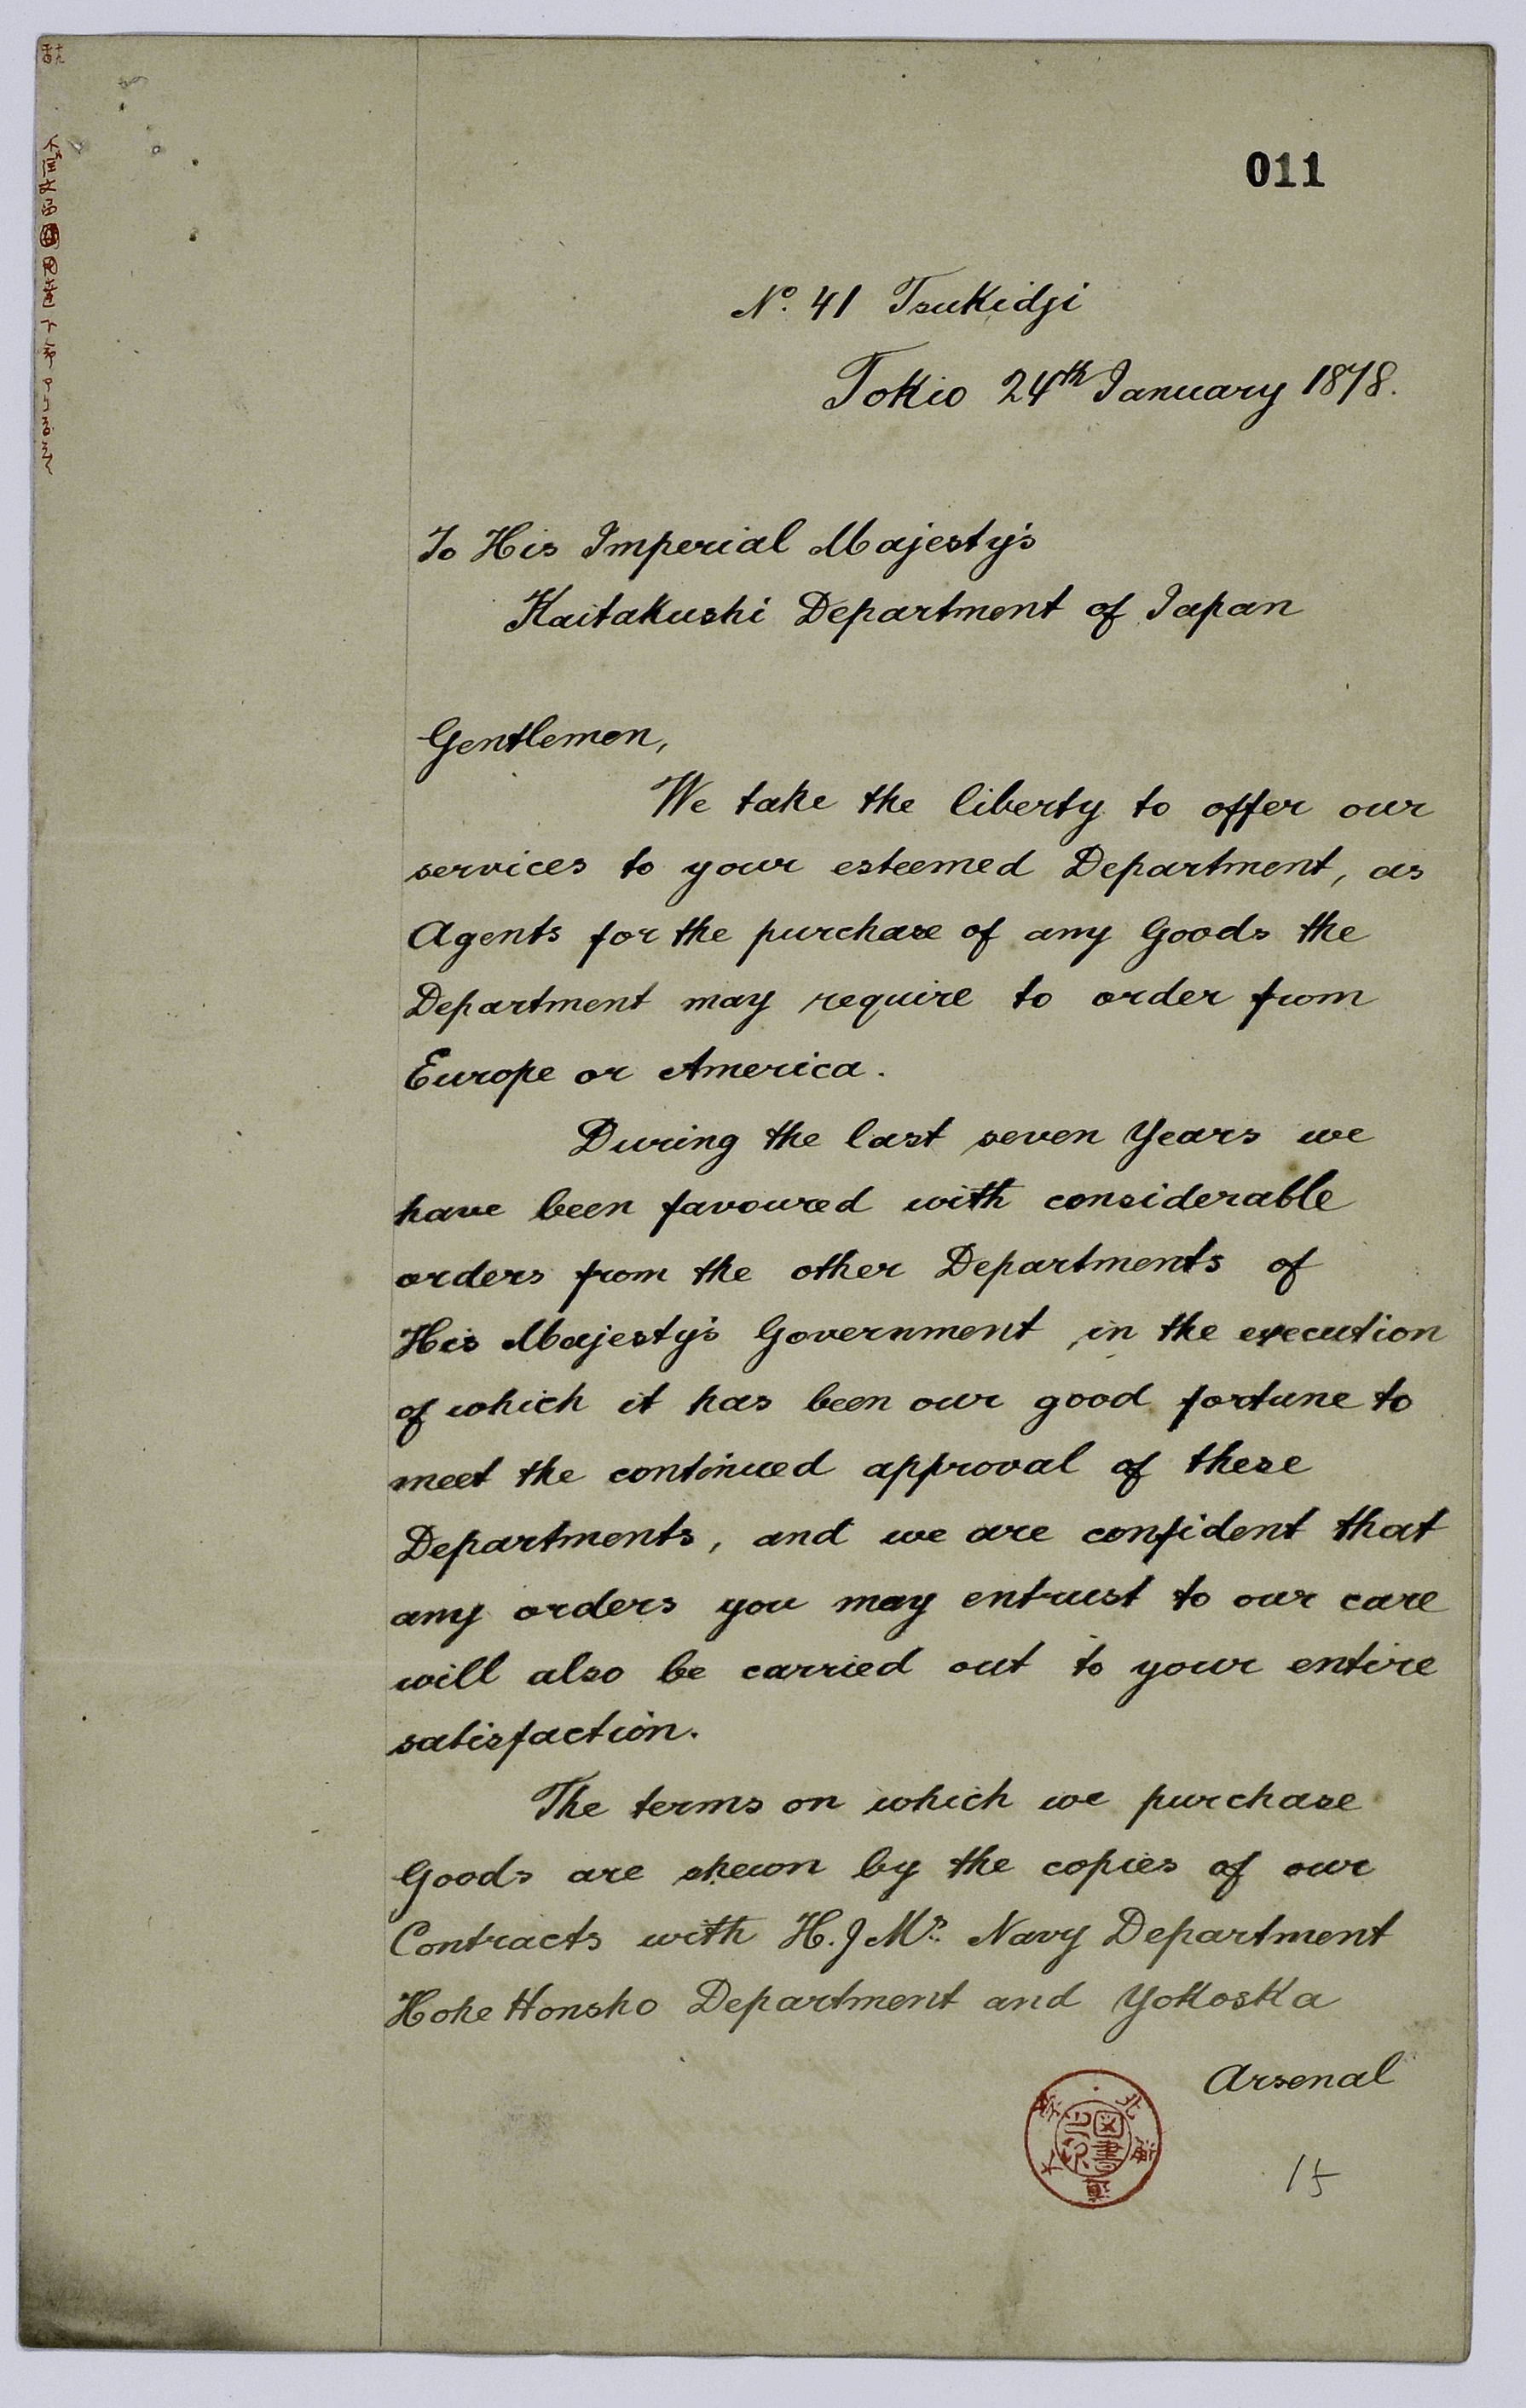 011
No. 41 Tsukidji
Tokio 24th January 1878.
To His Imperial Majesty's
Kaitakushi Department of Japan
Gentlemen,
We take the liberty to offer our
services to your esteemed Department, as
Agents for the purchase of any Goods the
Department may require to order from
Europe or America.
During the last seven Years we
have been favoured with considerable
orders from the other Departments of
His Majesty's Government in the execution
of which it has been our good fortune to
meet the continued approval of these
Departments, and we are confident that
any orders you may entrust to our care
will also be carried out to your entire
satisfaction.
The terms on which we purchase
Goods are shewn by the copies of our
Contracts with H.J.Ms. Navy Department
Hohe Honsho Department and Yokoska
Arsenal
北海道大学
図書
15